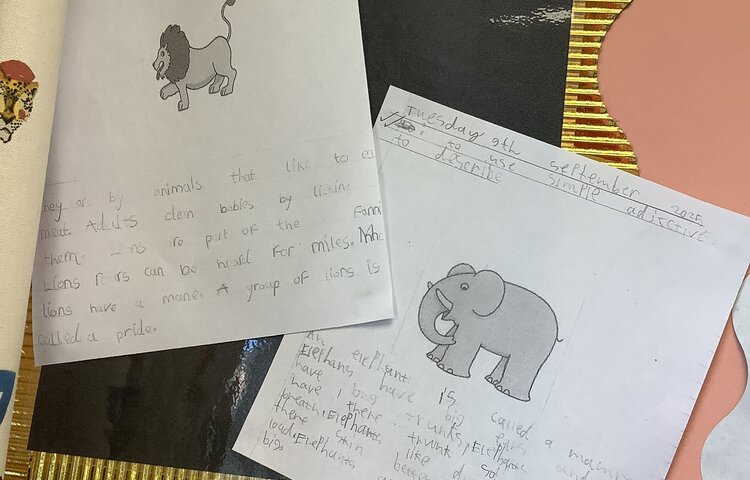 They are by animals that like to ea
meat. Adults clen babies by lickinn
them. re part of the Fami
Lions roars can be heard for miles.
lions have a mane. A group of lions is
called a pride.
Tuesday 9th september 2025
to use simple adjectives
to describe
An elephant is called a mamm
Elephans have big ears and
have big trunks, Elephants
have there trunk so
breath, Elephants like
there skin
load, Elephants better
big.